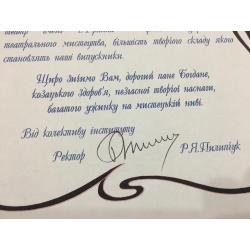 театрального мистецтва, більшість творчого складу якого
становлять наші випускники.
Щиро зичимо Вам, дорогий пане Богдане,
козацького здоров'я, незгасної творчої наснаги,
багатого ужинку на мистецькій ниві.
Від колективу інституту
Ректор
Р.Я.Пилипчук